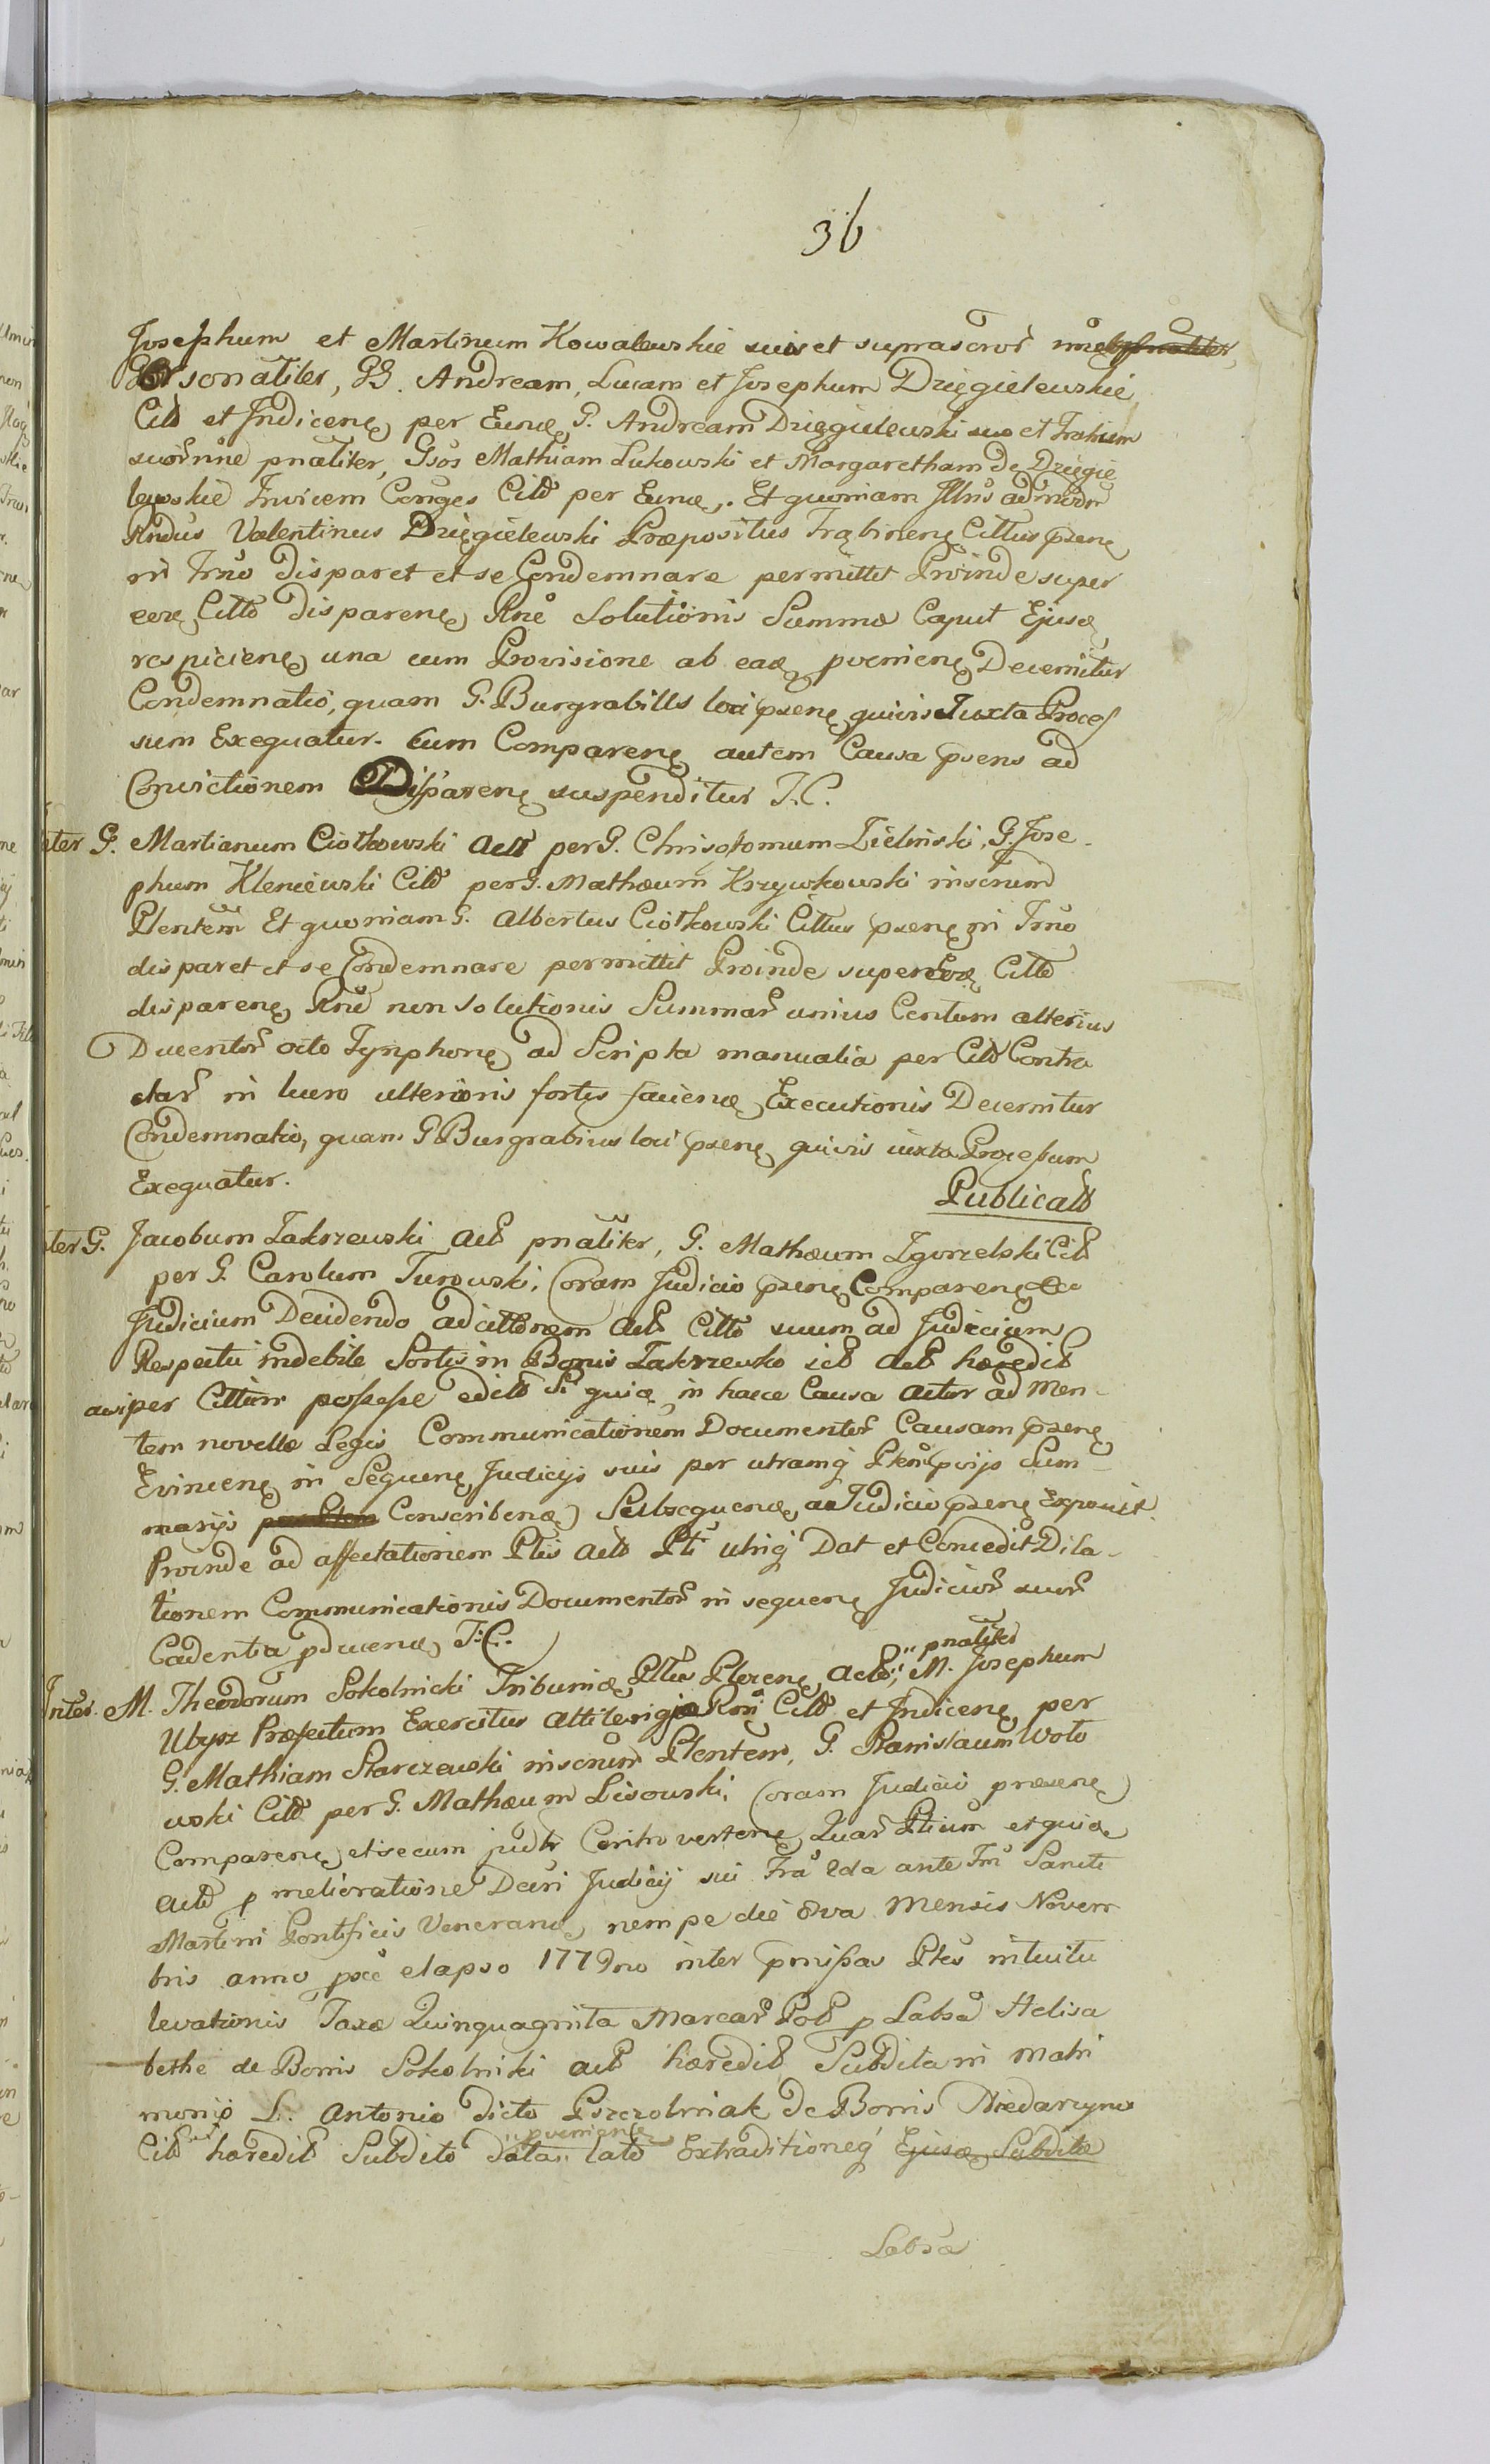 36
Josephum et Martinum Kowalewskie suis et suprascror nne
Personaliter, GG. Andream, Lucam et Josephum Dzięgielewskie
Citt et Indicenę per Eunę G. Andream Dzięgielewski suo et Fratrum
suor nne pnaliter, Gsos Mathiam Lukowski et Margaretham de Dzięgie
lewskie Invicem Conges Citt per Eunę. Et quoniam Illus admodm
Rndus Valentinus Dzięgielewski Præpositus Trąbinenę Cittus psenę
in Trno disparet et se Condemnare permittit Proinde super
eore Citto disparenę Rne Solutionis Summæ Caput Ejusę
respicienę una cum Provisione ab eaę pvenienę Decernitur
Condemnatio, quam G. Burgrabills loci psenę quivis Iuxta Proces
sum Exequatur. Cum Comparenę autem Causa psens ad
Convictionem Disparenę suspenditur T.C.
Inter G. Martianum Ciołkowski Actt per G. Chrisostomum Zieliński, G. Jose
phum Kleniewski Citt per G. Mathæum Krzywkowski inscrum
Plentem Et quoniam G. Albertus Ciołkowski Cittus psenę in Trno
disparet et se Condemnare permittit Proinde super Eoę Citto
disparenę Rne non solutionis Summar unius Centum alterius
Ducentor octo Tynphonę ad Scripta manualia per Citt Contra
ctar in lucro ulterioris fortis faciendę Executionis Decernitur
Condemnatio, quam G Burgrabius loci psenę quivis iuxta Processum
Exequatur.
Publicatt
Inter G. Jacobum Zakrzewski Actt pnaliter, G. Mathæum Zgorzelski Citt
per G. Carolum Turowski, Coram Judicio psenę Comparenę
Judicium Decidendo ad cittonem Actt Citto suum ad Judicium
Respectu indebite Sortis in Bonis Zakrzewko sictt Actt hæreditt
ac per Cittum possesse editt Si quię in hacce Causa Actor ad Men-
tem novellæ Legis Communicationem Documentor Causam psenę
Evincenę in Sequenę Judicijs suis per utramq Ptem pvijs Sum-
marijs Conscribendę Subsequendę a Judicio psenę Exposcit
Proinde ad affectationem Ptis Actt Pti utriq Dat et Concedit Dila-
tionem Communicationis Documentor in sequenę Judicior suor
Cadentia pducendę T.C.
Inter M. Theodorum Sokolnicki Tribunię Pttus Plozenę Actt, pnaliter M. Josephum
Ubysz Præfectum Exercitus Attilerię Rni Citt et Indicenę per
G. Mathiam Starczewski inscrum Plentem, G. Stanislaum Woło
wski Citt per G. Mathæum Lisowski, Coram Judicio præsenę
Comparenę et secum judtr Controvertenę Quar Ptium et quię
Actt p melioratione Decri Judicij sui Fra 2da ante Fm Sancti
Martini Pontificis Venerandę, nempe die 8va Mensis Novem
bris anno pxe elapso 1779no inter pmissas Ptes intuitu
levationis Taxæ Quinquaginta Marcar Pol p Labsa Helisa
bethe de Bonis Sokolniki Actt hæreditt Subdita in matri
monijo L. Antonio dicto Pszczolniak de Bonis Niedarzyno
Citt hæreditt Subdito data, pvenienę latt Extraditioneq Ejusę Subditæ
Labsæ